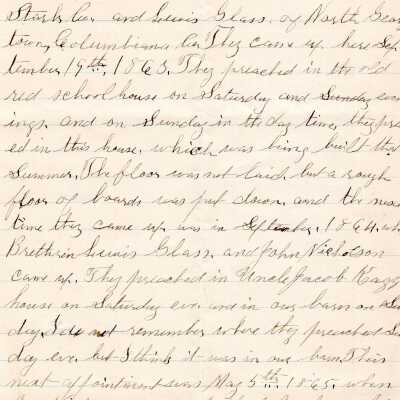 Stark Co. and Lewis Glass, of North Geor
town, Columbiana Co. They came up here Sep
tember 19th, 1863. They preached in the old
red school house on Saturday and Sunday even
ings, and on Sunday in the day time, they pre
ed in this house, which was being built that
Summer. The floor was not laid, but a rough
floor of boards was put down, and the next
time they came up was in September, 1864, wh
Brethrin Lewis Glass, and John Nicholson
came up. They preached in Uncle Jacob Kagg
house on Saturday eve. and in our barn on Sun
day, I do not remember where they preached Su
day eve. but I think it was in our barn. This
next appointment was May 5th, 1865, when